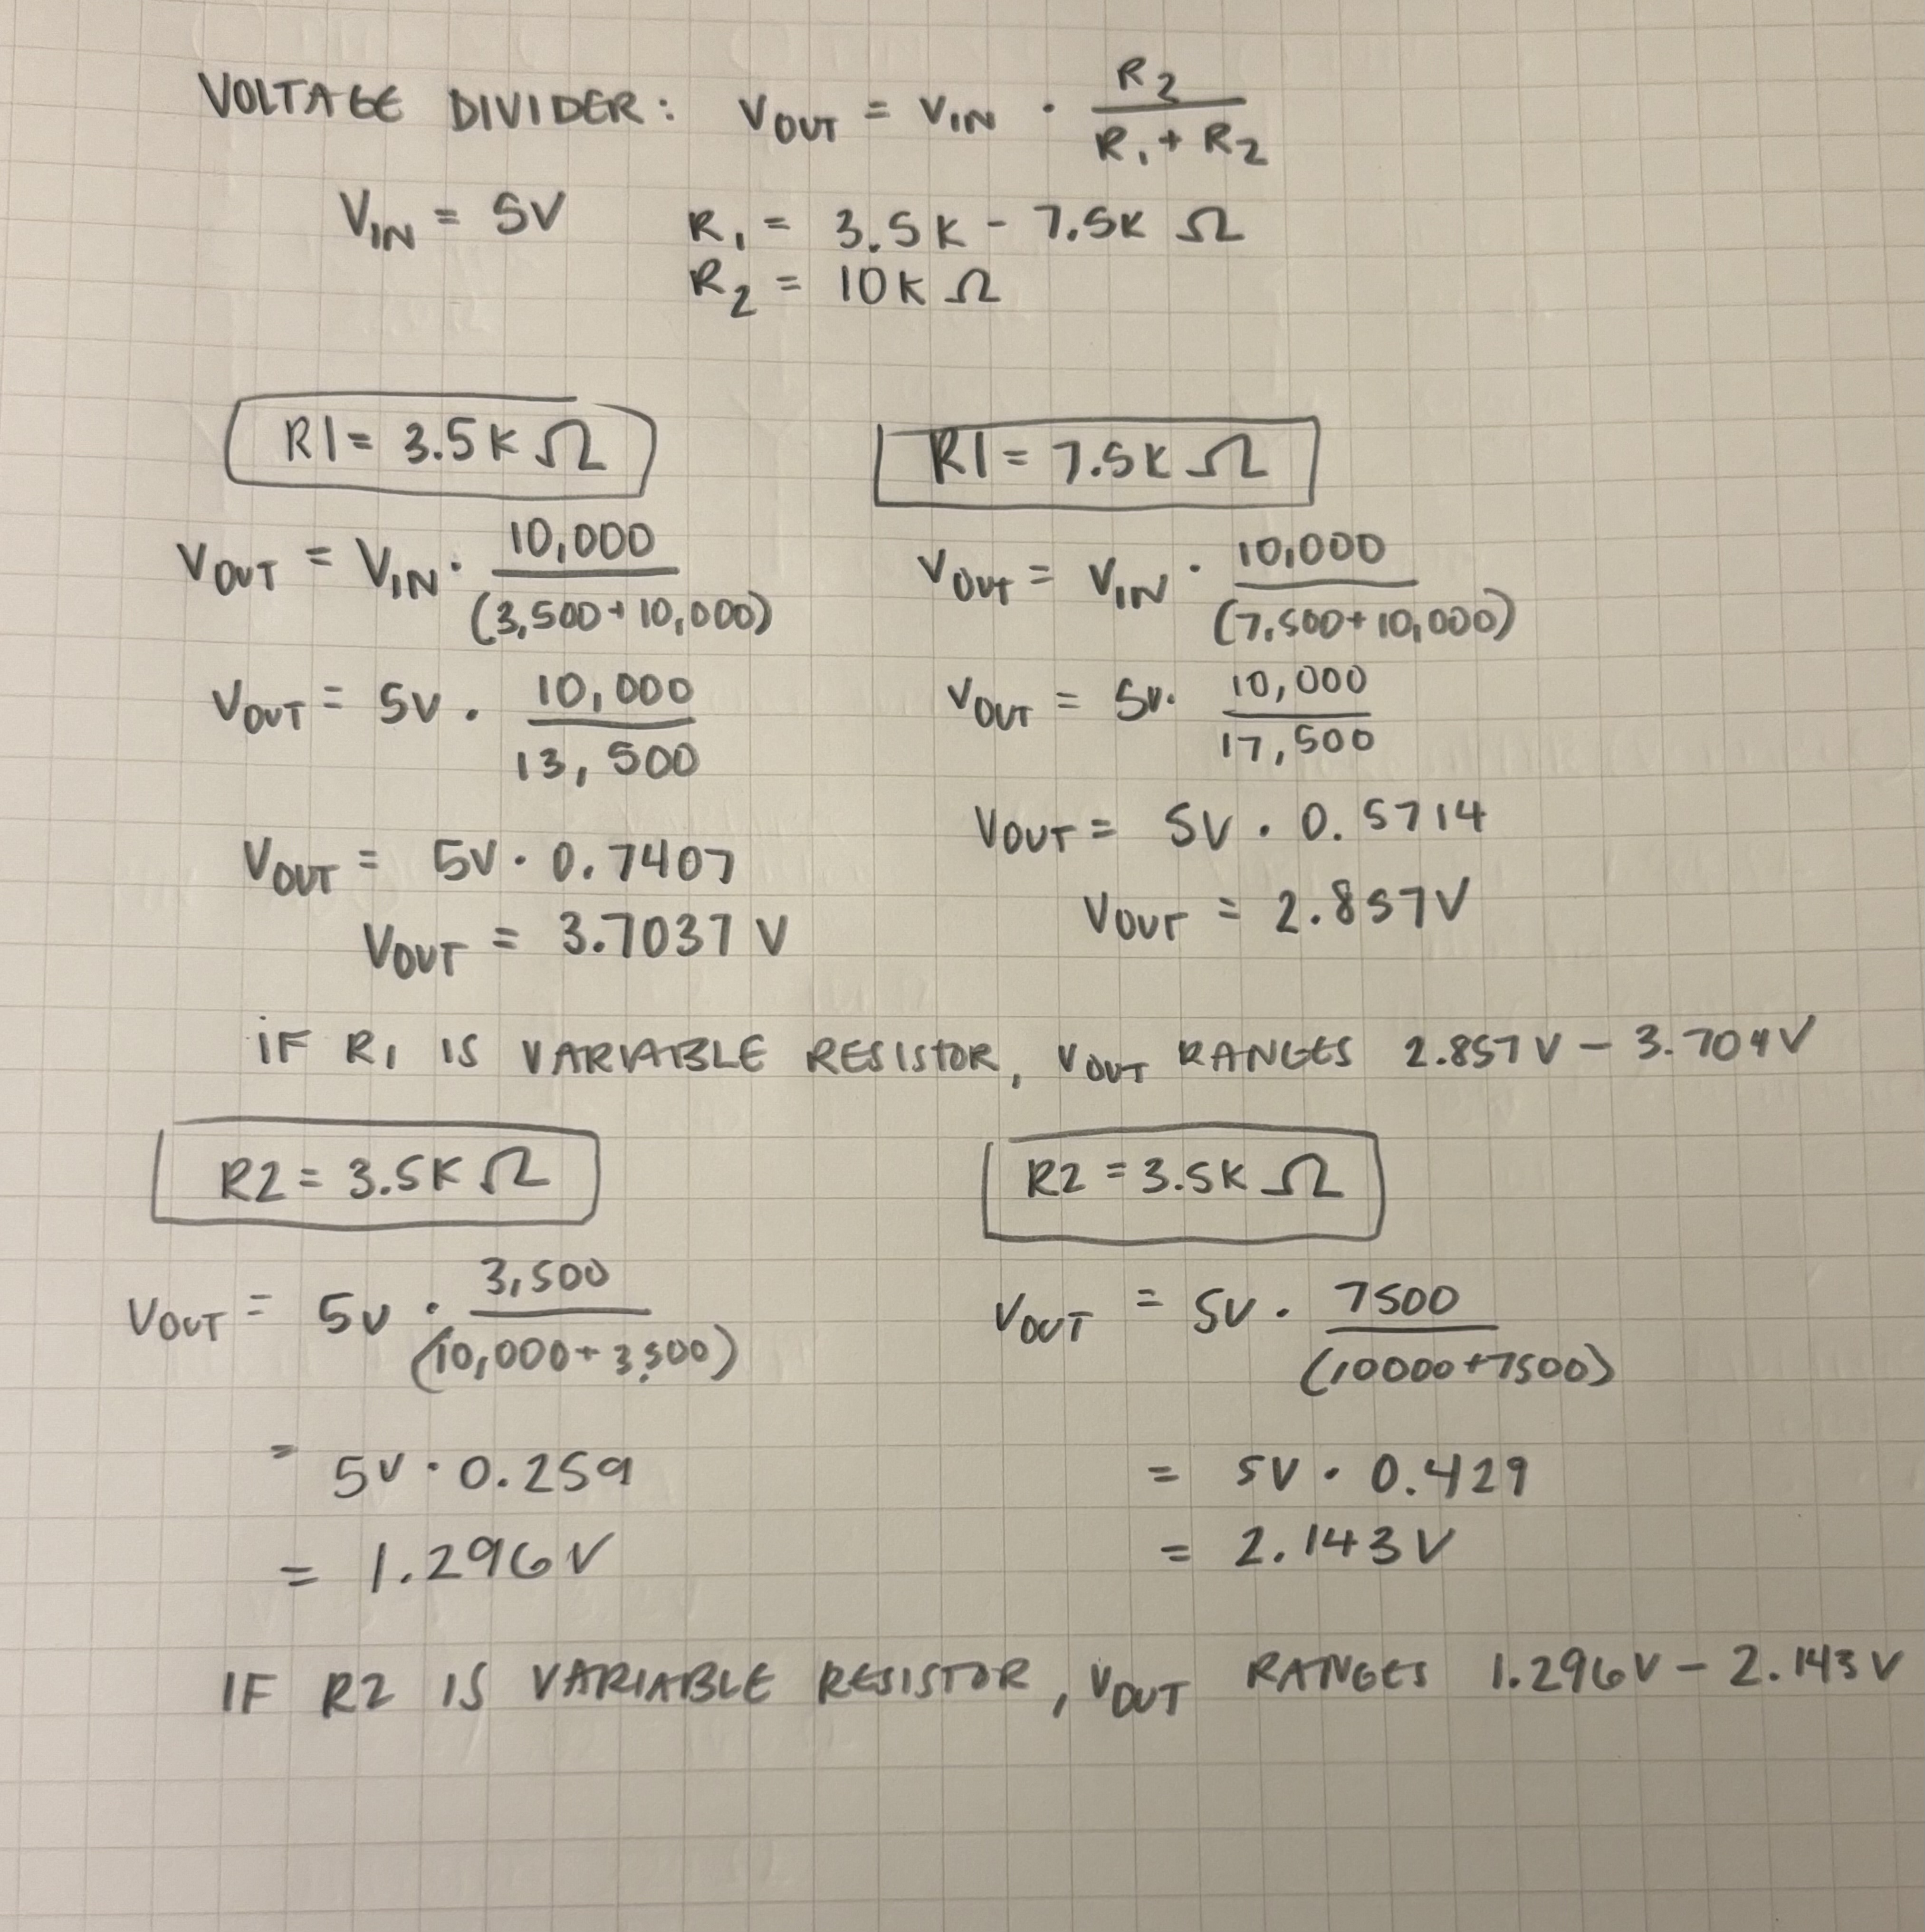 VOLTAGE DIVIDER: VOUT = VIN · R2 / (R1 + R2)
VIN = 5V R1 = 3.5K - 7.5K Ω
R2 = 10K Ω
R1 = 3.5K Ω
VOUT = VIN · 10,000 / (3,500 + 10,000)
VOUT = 5V · 10,000 / 13,500
VOUT = 5V · 0.7407
VOUT = 3.7037 V
R1 = 7.5K Ω
VOUT = VIN · 10,000 / (7,500 + 10,000)
VOUT = 5V · 10,000 / 17,500
VOUT = 5V · 0.5714
VOUT = 2.857V
IF R1 IS VARIABLE RESISTOR, VOUT RANGES 2.857V - 3.704V
R2 = 3.5K Ω
VOUT = 5V · 3,500 / (10,000 + 3,500)
= 5V · 0.259
= 1.296V
R2 = 3.5K Ω
VOUT = 5V · 7500 / (10000 + 7500)
= 5V · 0.429
= 2.143V
IF R2 IS VARIABLE RESISTOR, VOUT RANGES 1.296V - 2.143V